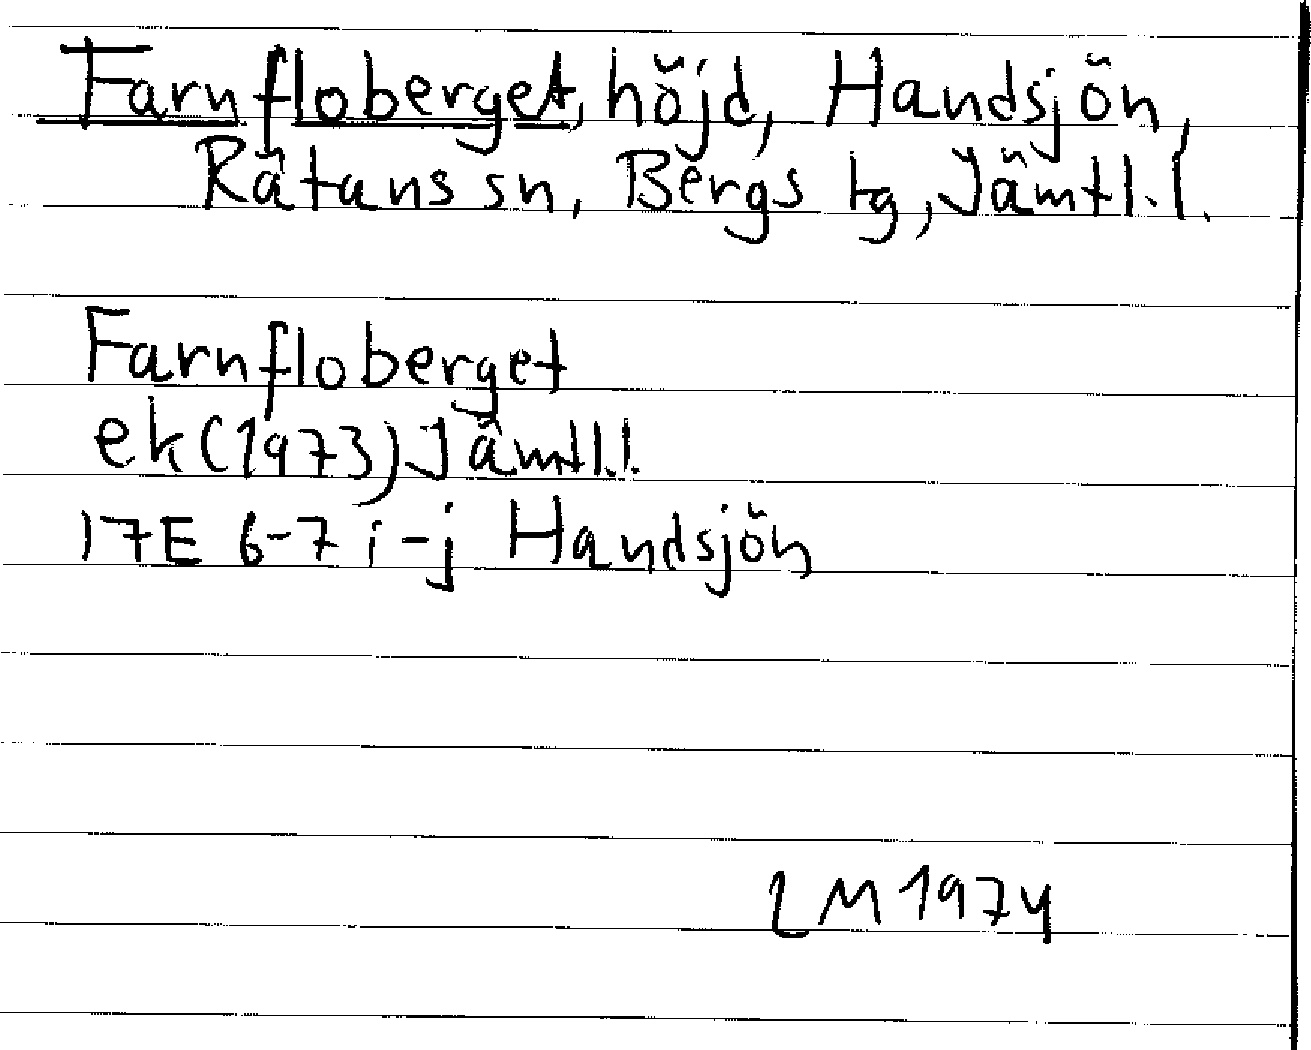 Farnfloberget, höjd, Handsjön,
Rätans sn, Bergs tg, Jämtl.l.
Farnfloberget
ek(1973) Jämtl.l.
17E 6-7 i-j Handsjön
LM 1974